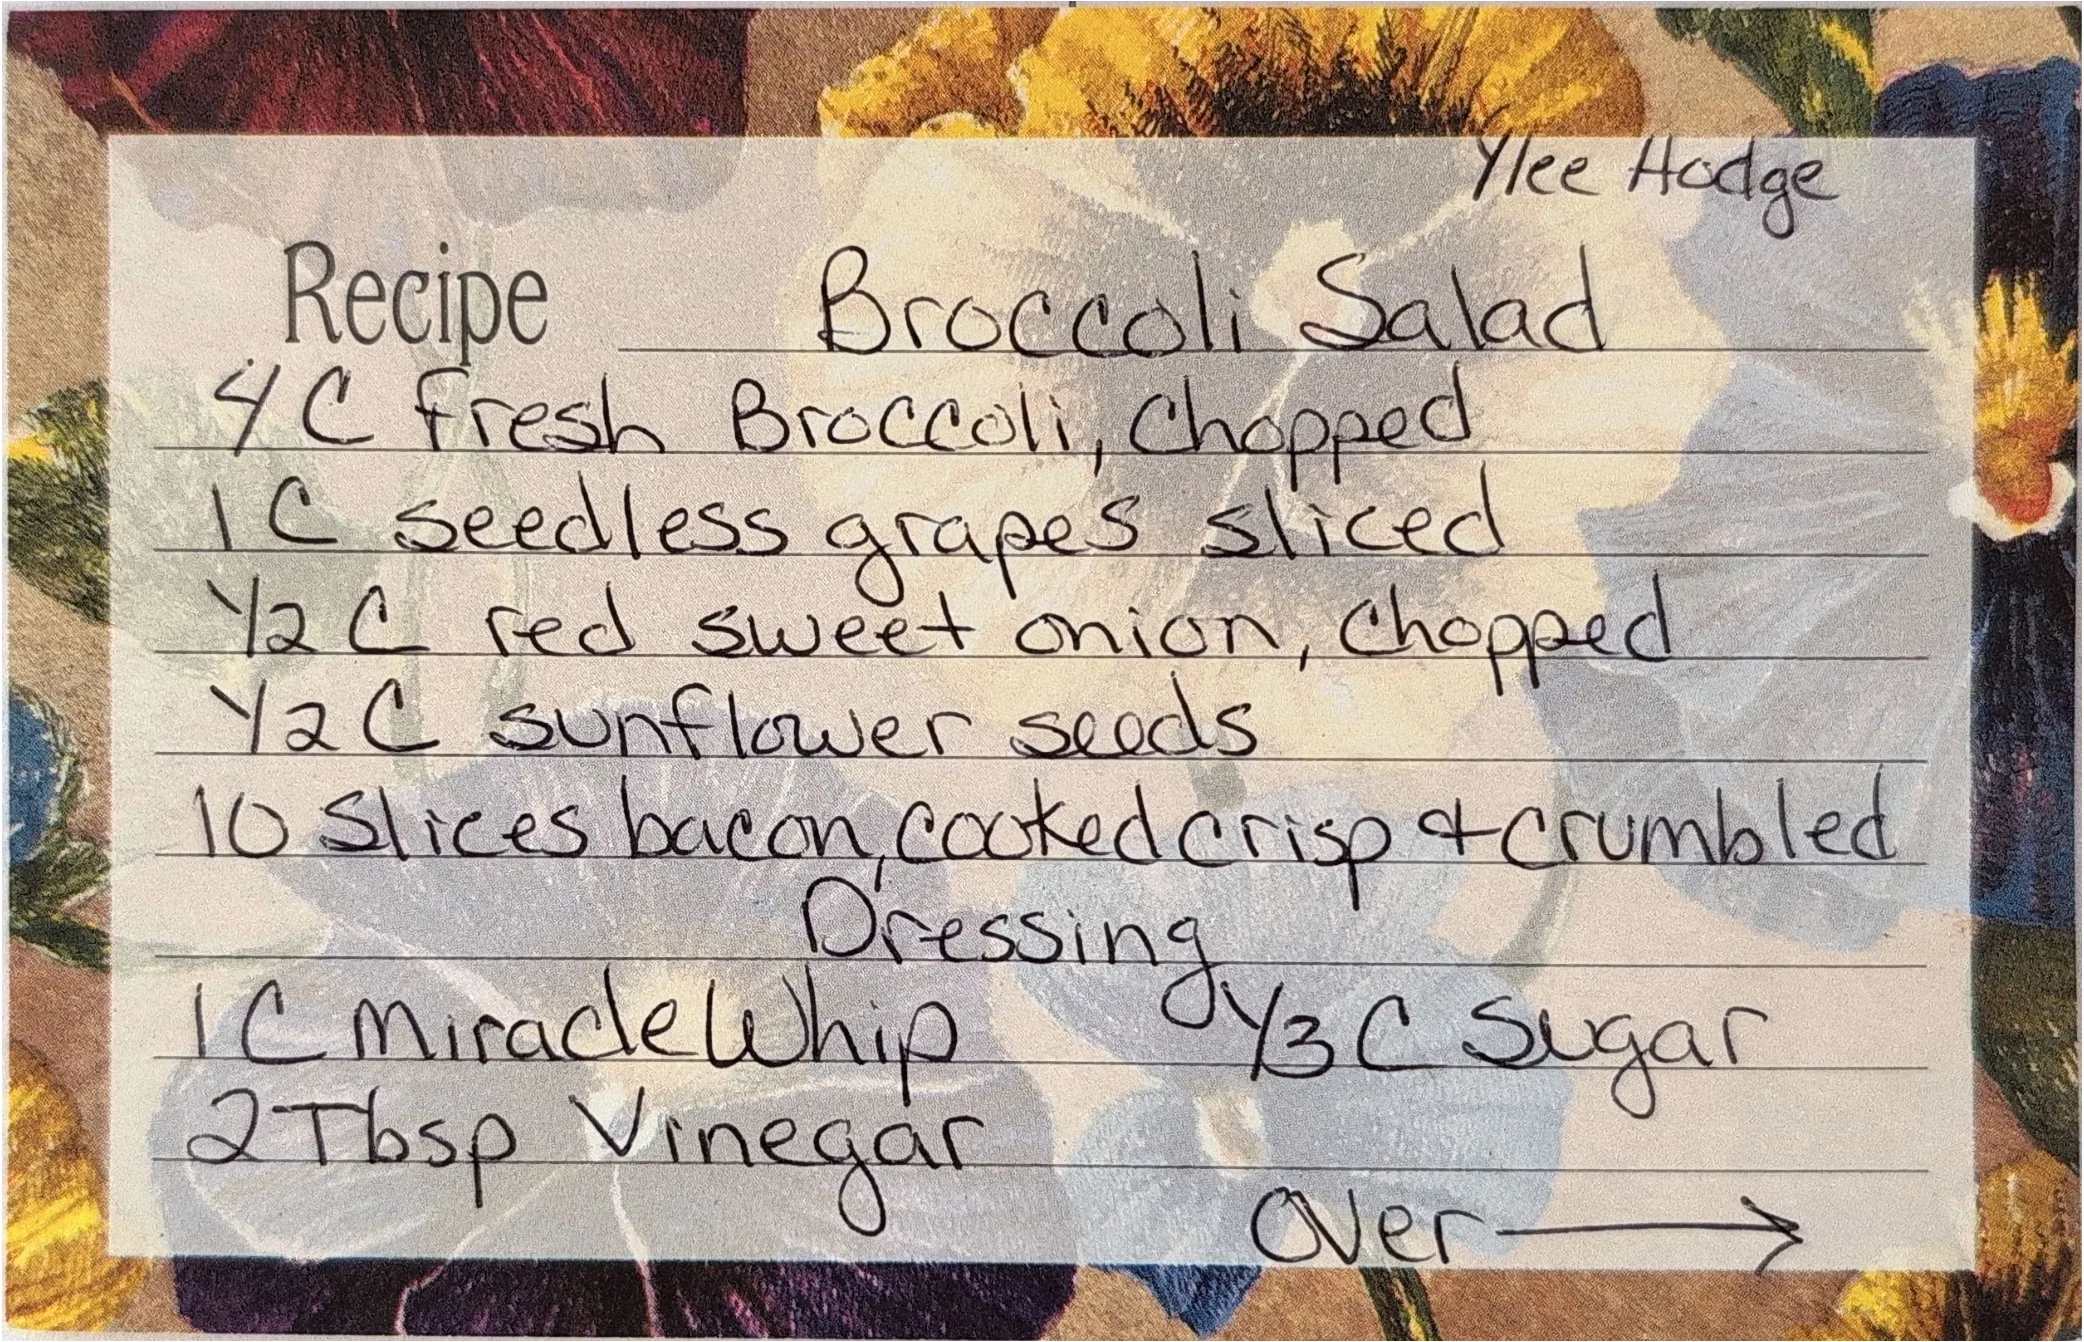 Ylee Hodge
Recipe Broccoli Salad
4 C fresh Broccoli, Chopped
1 C seedless grapes sliced
1/2 C red sweet onion, Chopped
1/2 C sunflower seeds
10 Slices bacon, cooked crisp & crumbled
Dressing
1 C Miracle Whip 1/3 C Sugar
2 Tbsp Vinegar
Over →